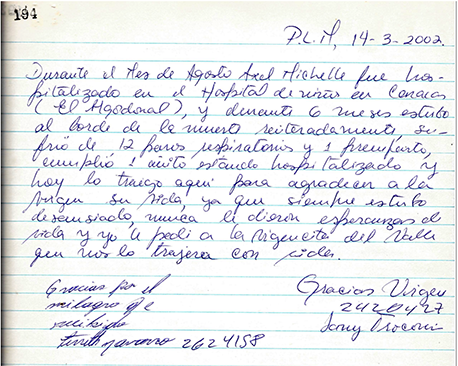 194
P.L.M, 14-3-2002.
Durante el Mes de Agosto Axel Michelle fue hos-
pitalizado en el Hospital de niños en Caracas
(El Algodonal), y durante 6 meses estubo
al borde de la muerte reiteradamente, su-
frio de 12 paros respiratorios y 1 preinfarto,
cumplió 1 añito estando hospitalizado y
hoy lo traigo aqui para agradecer a la
virgen su vida, ya que siempre estubo
desausiado, nunca le dieron esperanzas de
vida y yo le pedi a la Virgencita del Valle
que nos lo trajera con vida.
Gracias por el
milagro q e
recibido
navarro 2624158
Gracias Virgen
2420427